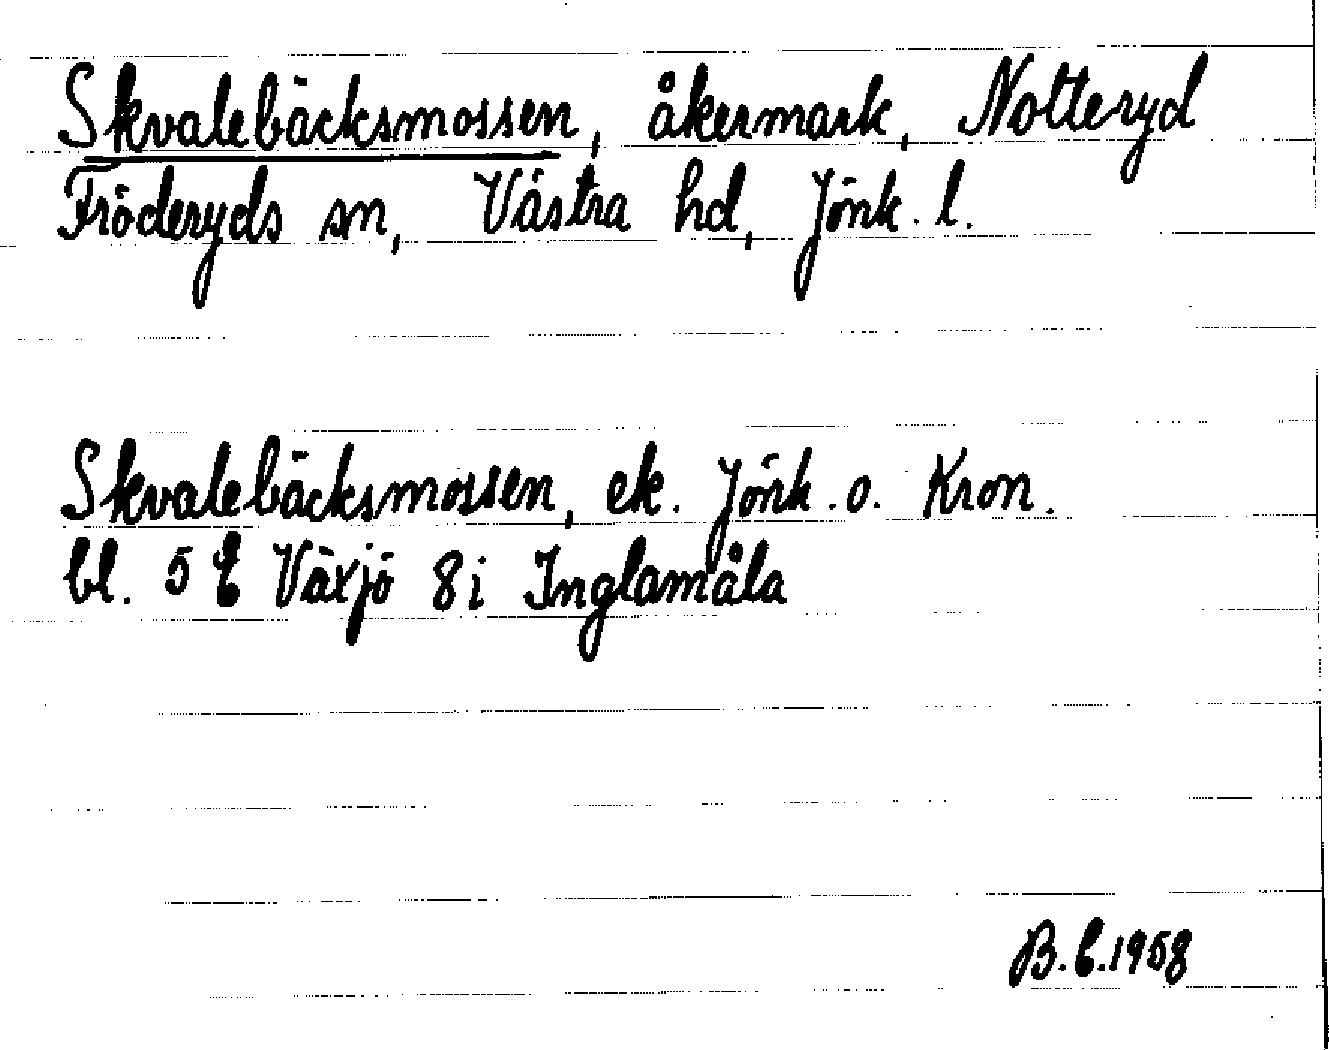 Skvalebäcksmossen, åkermark, Notteryd
Fröderyds sn, Västra hd, Jönk. l.
Skvalebäcksmossen, ek. Jönk. o. Kron.
bl. 5 E Växjö 8i Inglamåla
B.E.1958